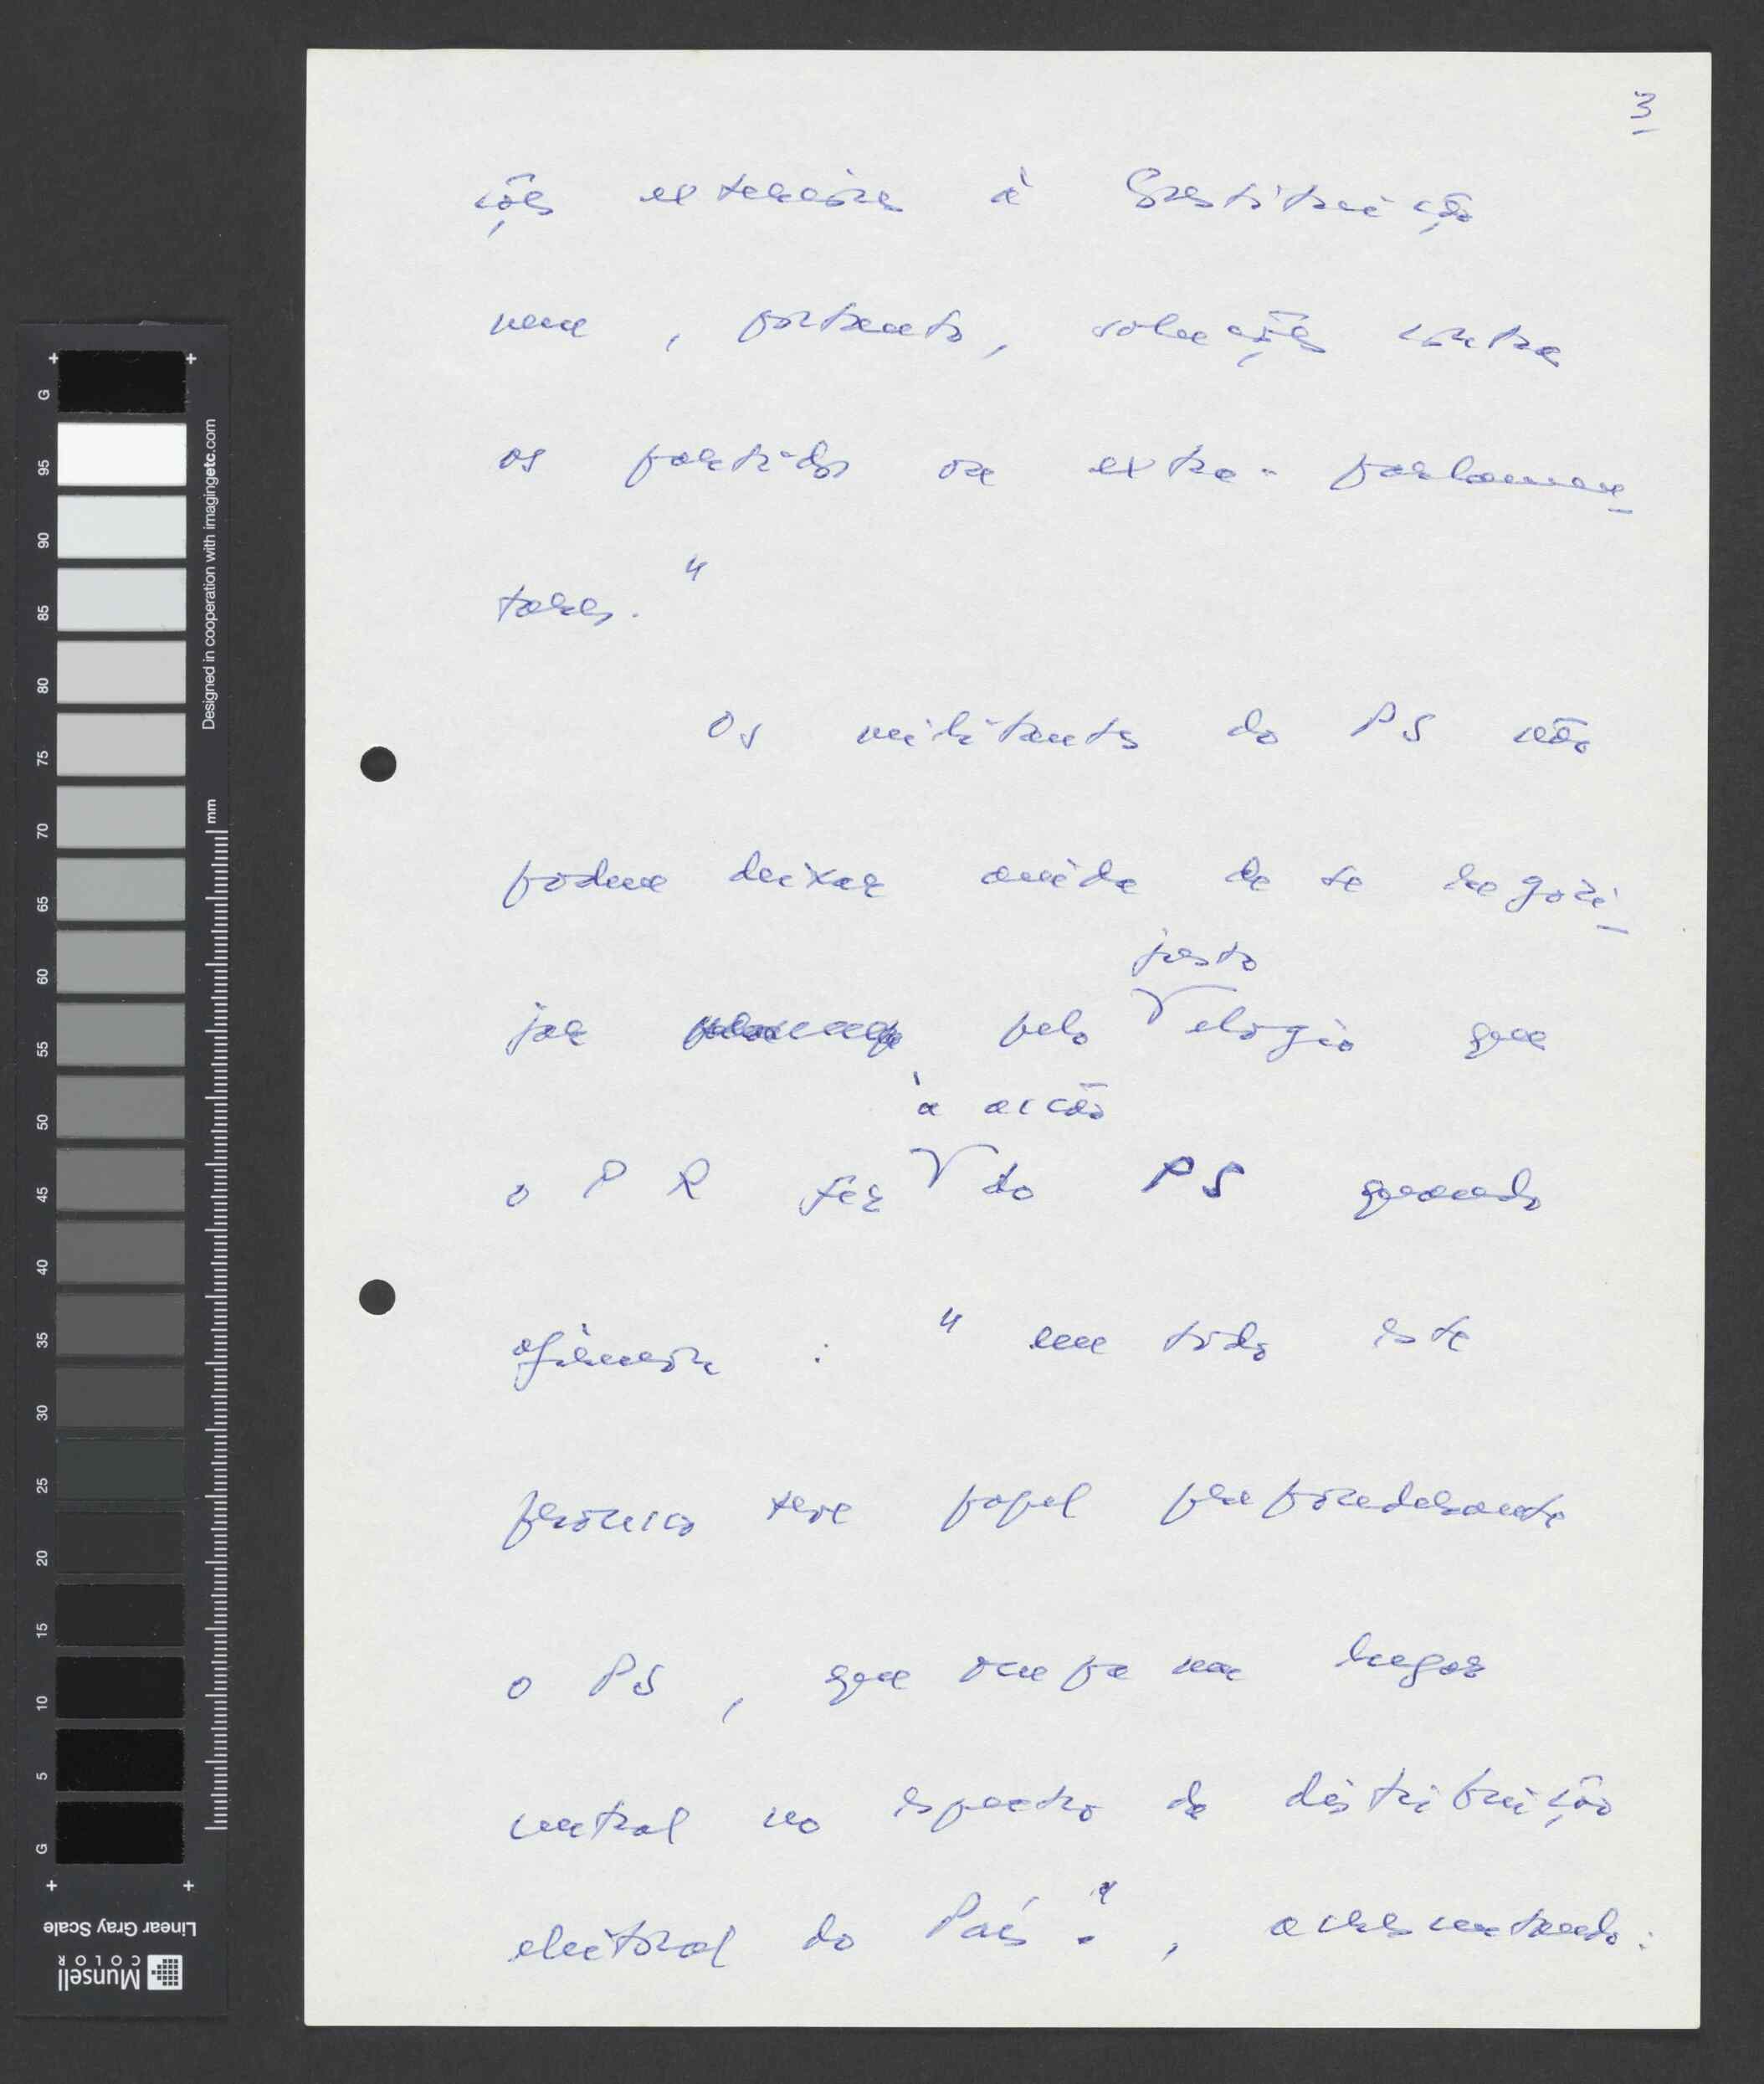 3
ções exteriores à Constituição
nem, portanto, soluções contra
os partidos ou extra-parlamen
tares."
Os militantes do PS não
podem deixar ainda de se regozi
justo
jar pelo elogio que
à acção
o PR fez do PS quando
afirmou : " em todo este
processo teve papel preponderante
o PS, que ocupa um lugar
central no espectro da distribuição
eleitoral do País.", acrescentando:
G
95
90
85
80
75
70
65
60
55
50
45
40
35
30
25
20
15
10
5
G
mm
Designed in cooperation with imagingetc.com
Linear Gray Scale
Munsell
COLOR